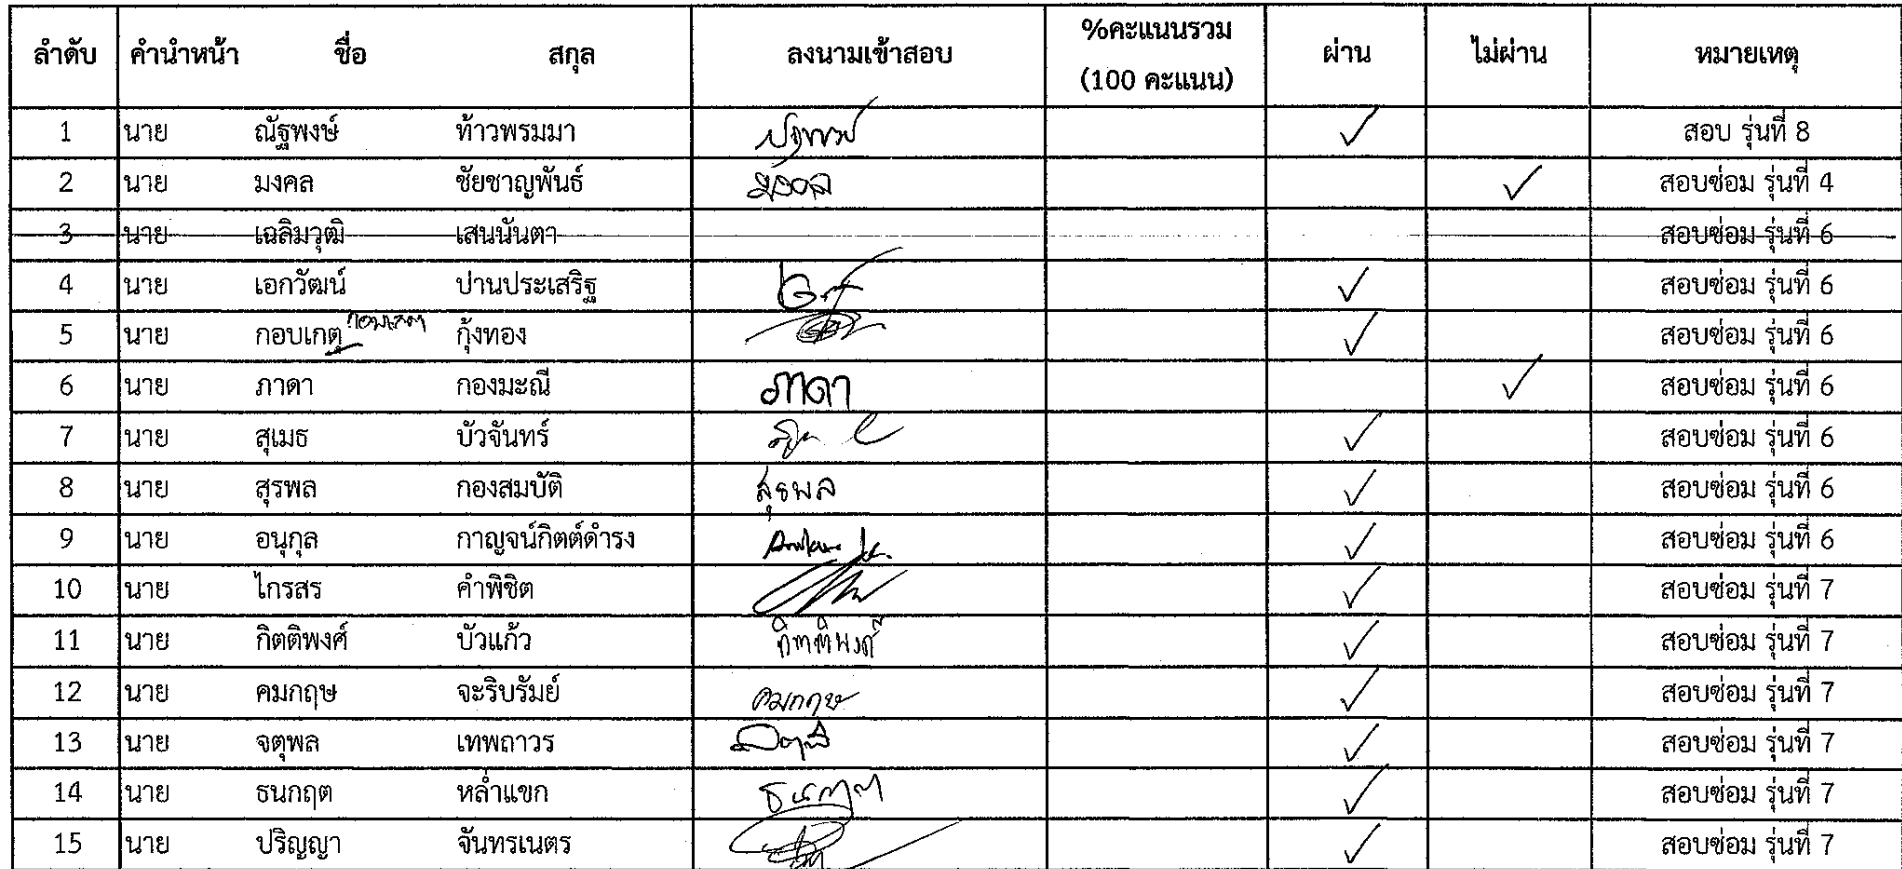 ลำดับ คำนำหน้า ชื่อ สกุล ลงนามเข้าสอบ %คะแนนรวม (100 คะแนน) ผ่าน ไม่ผ่าน หมายเหตุ
1 นาย ณัฐพงษ์ ท้าวพรมมา ✓ สอบ รุ่นที่ 8
2 นาย มงคล ชัยชาญพันธ์ มงคล ✓ สอบซ่อม รุ่นที่ 4
3 นาย เฉลิมวุฒิ เสนนันตา สอบซ่อม รุ่นที่ 6
4 นาย เอกวัฒน์ ปานประเสริฐ ✓ สอบซ่อม รุ่นที่ 6
5 นาย กอบเกตุ กุ้งทอง ✓ สอบซ่อม รุ่นที่ 6
6 นาย ภาดา กองมะณี ภาดา ✓ สอบซ่อม รุ่นที่ 6
7 นาย สุเมธ บัวจันทร์ ✓ สอบซ่อม รุ่นที่ 6
8 นาย สุรพล กองสมบัติ สุรพล ✓ สอบซ่อม รุ่นที่ 6
9 นาย อนุกุล กาญจน์กิตต์ดำรง ✓ สอบซ่อม รุ่นที่ 6
10 นาย ไกรสร คำพิชิต ✓ สอบซ่อม รุ่นที่ 7
11 นาย กิตติพงศ์ บัวแก้ว กิตติพงศ์ ✓ สอบซ่อม รุ่นที่ 7
12 นาย คมกฤษ จะริบรัมย์ คมกฤษ ✓ สอบซ่อม รุ่นที่ 7
13 นาย จตุพล เทพถาวร ✓ สอบซ่อม รุ่นที่ 7
14 นาย ธนกฤต หล่ำแขก ธนกฤต ✓ สอบซ่อม รุ่นที่ 7
15 นาย ปริญญา จันทรเนตร ✓ สอบซ่อม รุ่นที่ 7